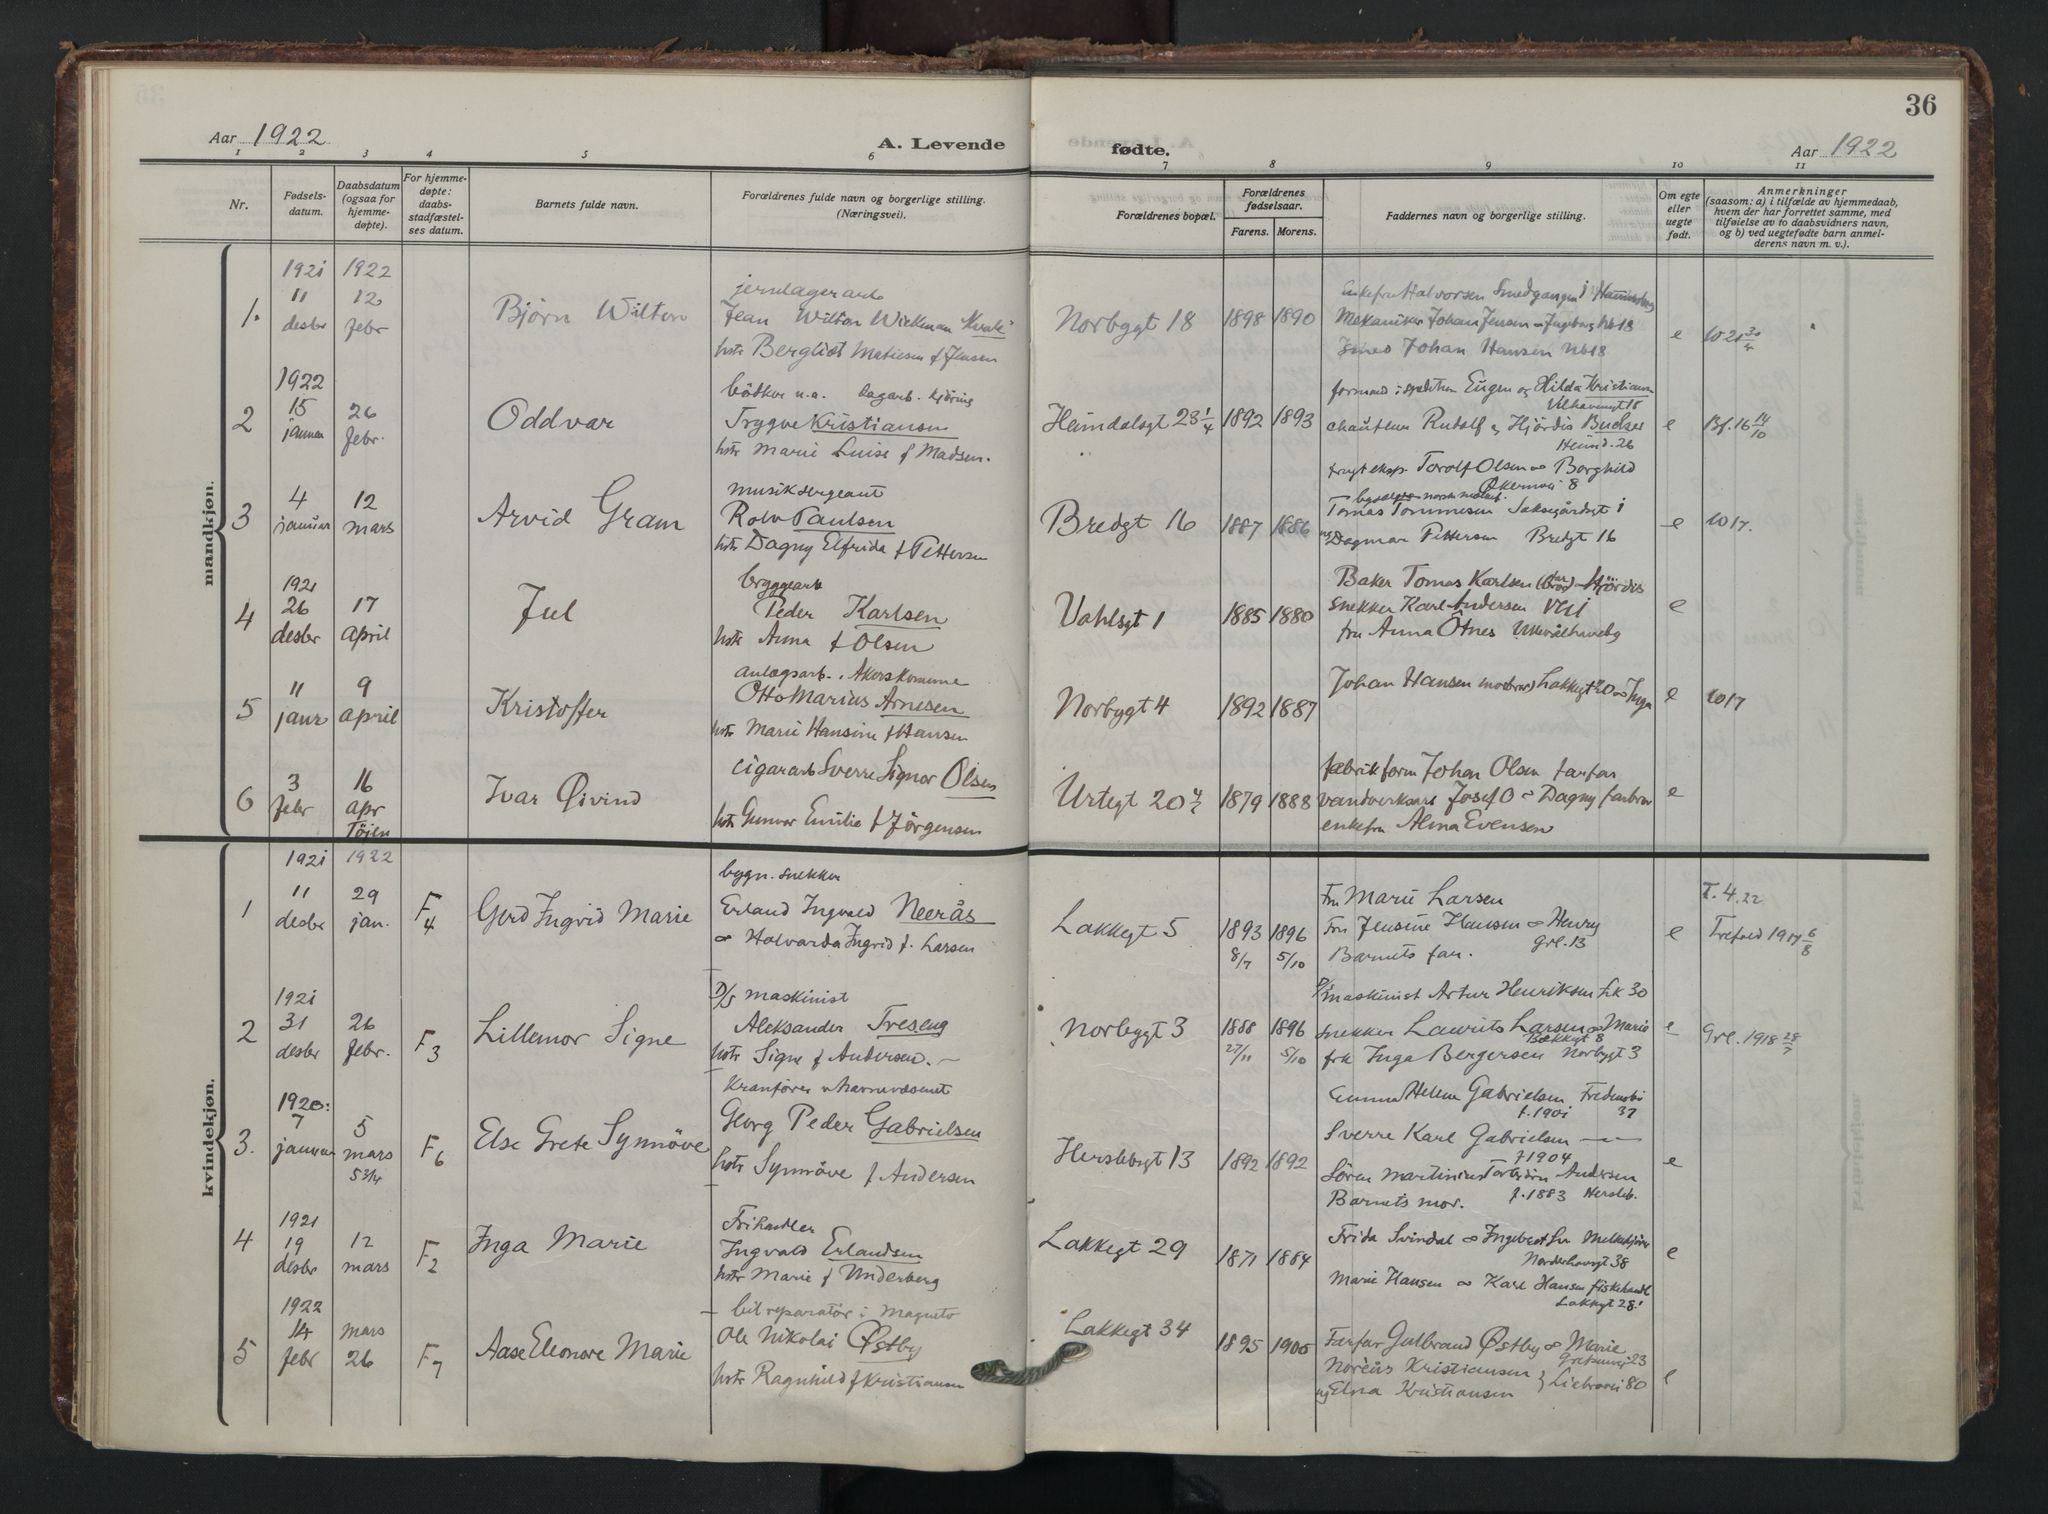 36
Aar 1922
A. Levende
fødte.
Aar 1922
1 2 3 4 5 6 7 8 9 10 11
Nr.
Fødselsdatum.
Daabsdatum (ogsaa for hjemmedøpte).
For hjemmedøpte: daabsstadfæstelses datum.
Barnets fulde navn.
Forældrenes fulde navn og borgerlige stilling. (Næringsvei).
Forældrenes bopæl.
Forældrenes fødselsaar.
Farens. Morens.
Faddernes navn og borgerlige stilling.
Om egte eller uegte født.
Anmerkninger
(saasom: a) i tilfælde av hjemmedaab,
hvem der har forrettet samme, med
tilføielse av to daabsvidners navn,
og b) ved uegtefødte barn anmelderens navn m. v.).
mandkjøn.
1.
1921 11 desbr
1922 12 febr
Bjørn Wilton
jernlagerarb
Jean Wilton Wickman
hstr Bergliot Matiesen f Jensen
Norbygt 18
1898 1890
Enkefru Halvorsen Smedgangen 1
Mekaniker Johan Jensen Ingeborg Nb 18
smed Johan Hansen Nb 18
e
2
1922 15 januar
26 febr.
Oddvar
bødker u.a. Dagarb. kjøring
Trygve Kristiansen
hstr Marie Luise f Madsen.
Heimdalsgt 23 1/4
1892 1893
Eugen og Hilda Kristiansen
chauffeur Rudolf og Hjördis
Heimd. 26
Torolf Olsen Borghild
e
Bf. 16 14/10
3
4 januar
12 mars
Arvid Gram
musiksergeant
Rolv Paulsen
hstr Dagny Elfrida f Pettersen
Bredgt 16
1887 1886
Tomas Tommesen Saksegårdsgt 1
Dagmar Pettersen Bredgt 16
e
4
1921 26 desbr
17 april
Jul
bryggearb
Peder Karlsen
hstr Anna f Olsen
Vahlsgt 1
1885 1880
Baker Tomas Karlsen Hjördis
snekker Karl Andersen
fru Anna Otnes
e
5
11 janr
9 april
Kristoffer
anlægsarb. Akerskommune
Otto Marius Arnesen
hstr Marie Hansine f Hansen
Norbygt 4
1892 1887
Johan Hansen Lakkegt 20 Inga
e
6
3 febr
16 apr Töien
Ivar Øivind
cigararb Sverre Signor Olsen
hstr Gunvor Emilie f Jörgensen
Urtegt 20
1879 1888
fabrikform Johan Olsen farfar
Josef O Dagny farbror
enkefru Alma Evensen
e
kvindekjøn.
1
1921 11 desbr
1922 29 jan.
F 4
Gerd Ingrid Marie
bygn. snekker
Erland Ingvald Neerås
Halvarda Ingrid f. Larsen
Lakkegt 5
1893 8/7
1896 5/10
Fru Marie Larsen
Fru Jensine Hansen Henry
Grl. 13
Barnets far.
e
T. 4. 22
2
1921 31 desbr
26 febr.
F 3
Lillemor Signe
D/S maskinist
Aleksander Treseng
hstr Signe f Andersen.
Norbygt 3
1888 27/11
1896 5/10
maskinist Artur Henriksen Lk 30
snekker Laurits Larsen Marie
frk Inga Bergersen Norbygt 3
e
Grl. 1918 28/7
3.
1920: 7 januar
5 mars
F 6
Else Grete Synnöve
Kranförer v havnevæsenet
Georg Peder Gabrielsen
hstr Synnöve f Andersen
Herslebsgt 13
1892 1892
Gunna Helene Gabrielsen
f. 1901 37
Sverre Karl Gabrielsen
f 1904
Sören Martinius Andersen
f. 1883 Hersleb.
Barnets mor.
e
4
1921 19 desbr
12 mars
F 2
Inga Marie
Frihandler
Ingvald Erlandsen
hstr Marie f Underberg
Lakkegt 29
1871 1884
Frida Svindal
Norderhovsgt 38
Marie Hansen Karl Hansen fiskehandl
Lakkegt 28
e
5
1922 14 febr
mars 26
F 7
Aase Eleonore Marie
bilreparatör i magneto
Ole Nikolai Østby
hstr Ragnhild f Kristiansen
Lakkegt 34
1895 1900
Farfar Gulbrand Østby Marie
Kristiansen
og Elna Kristiansen
Liebravei 80
e